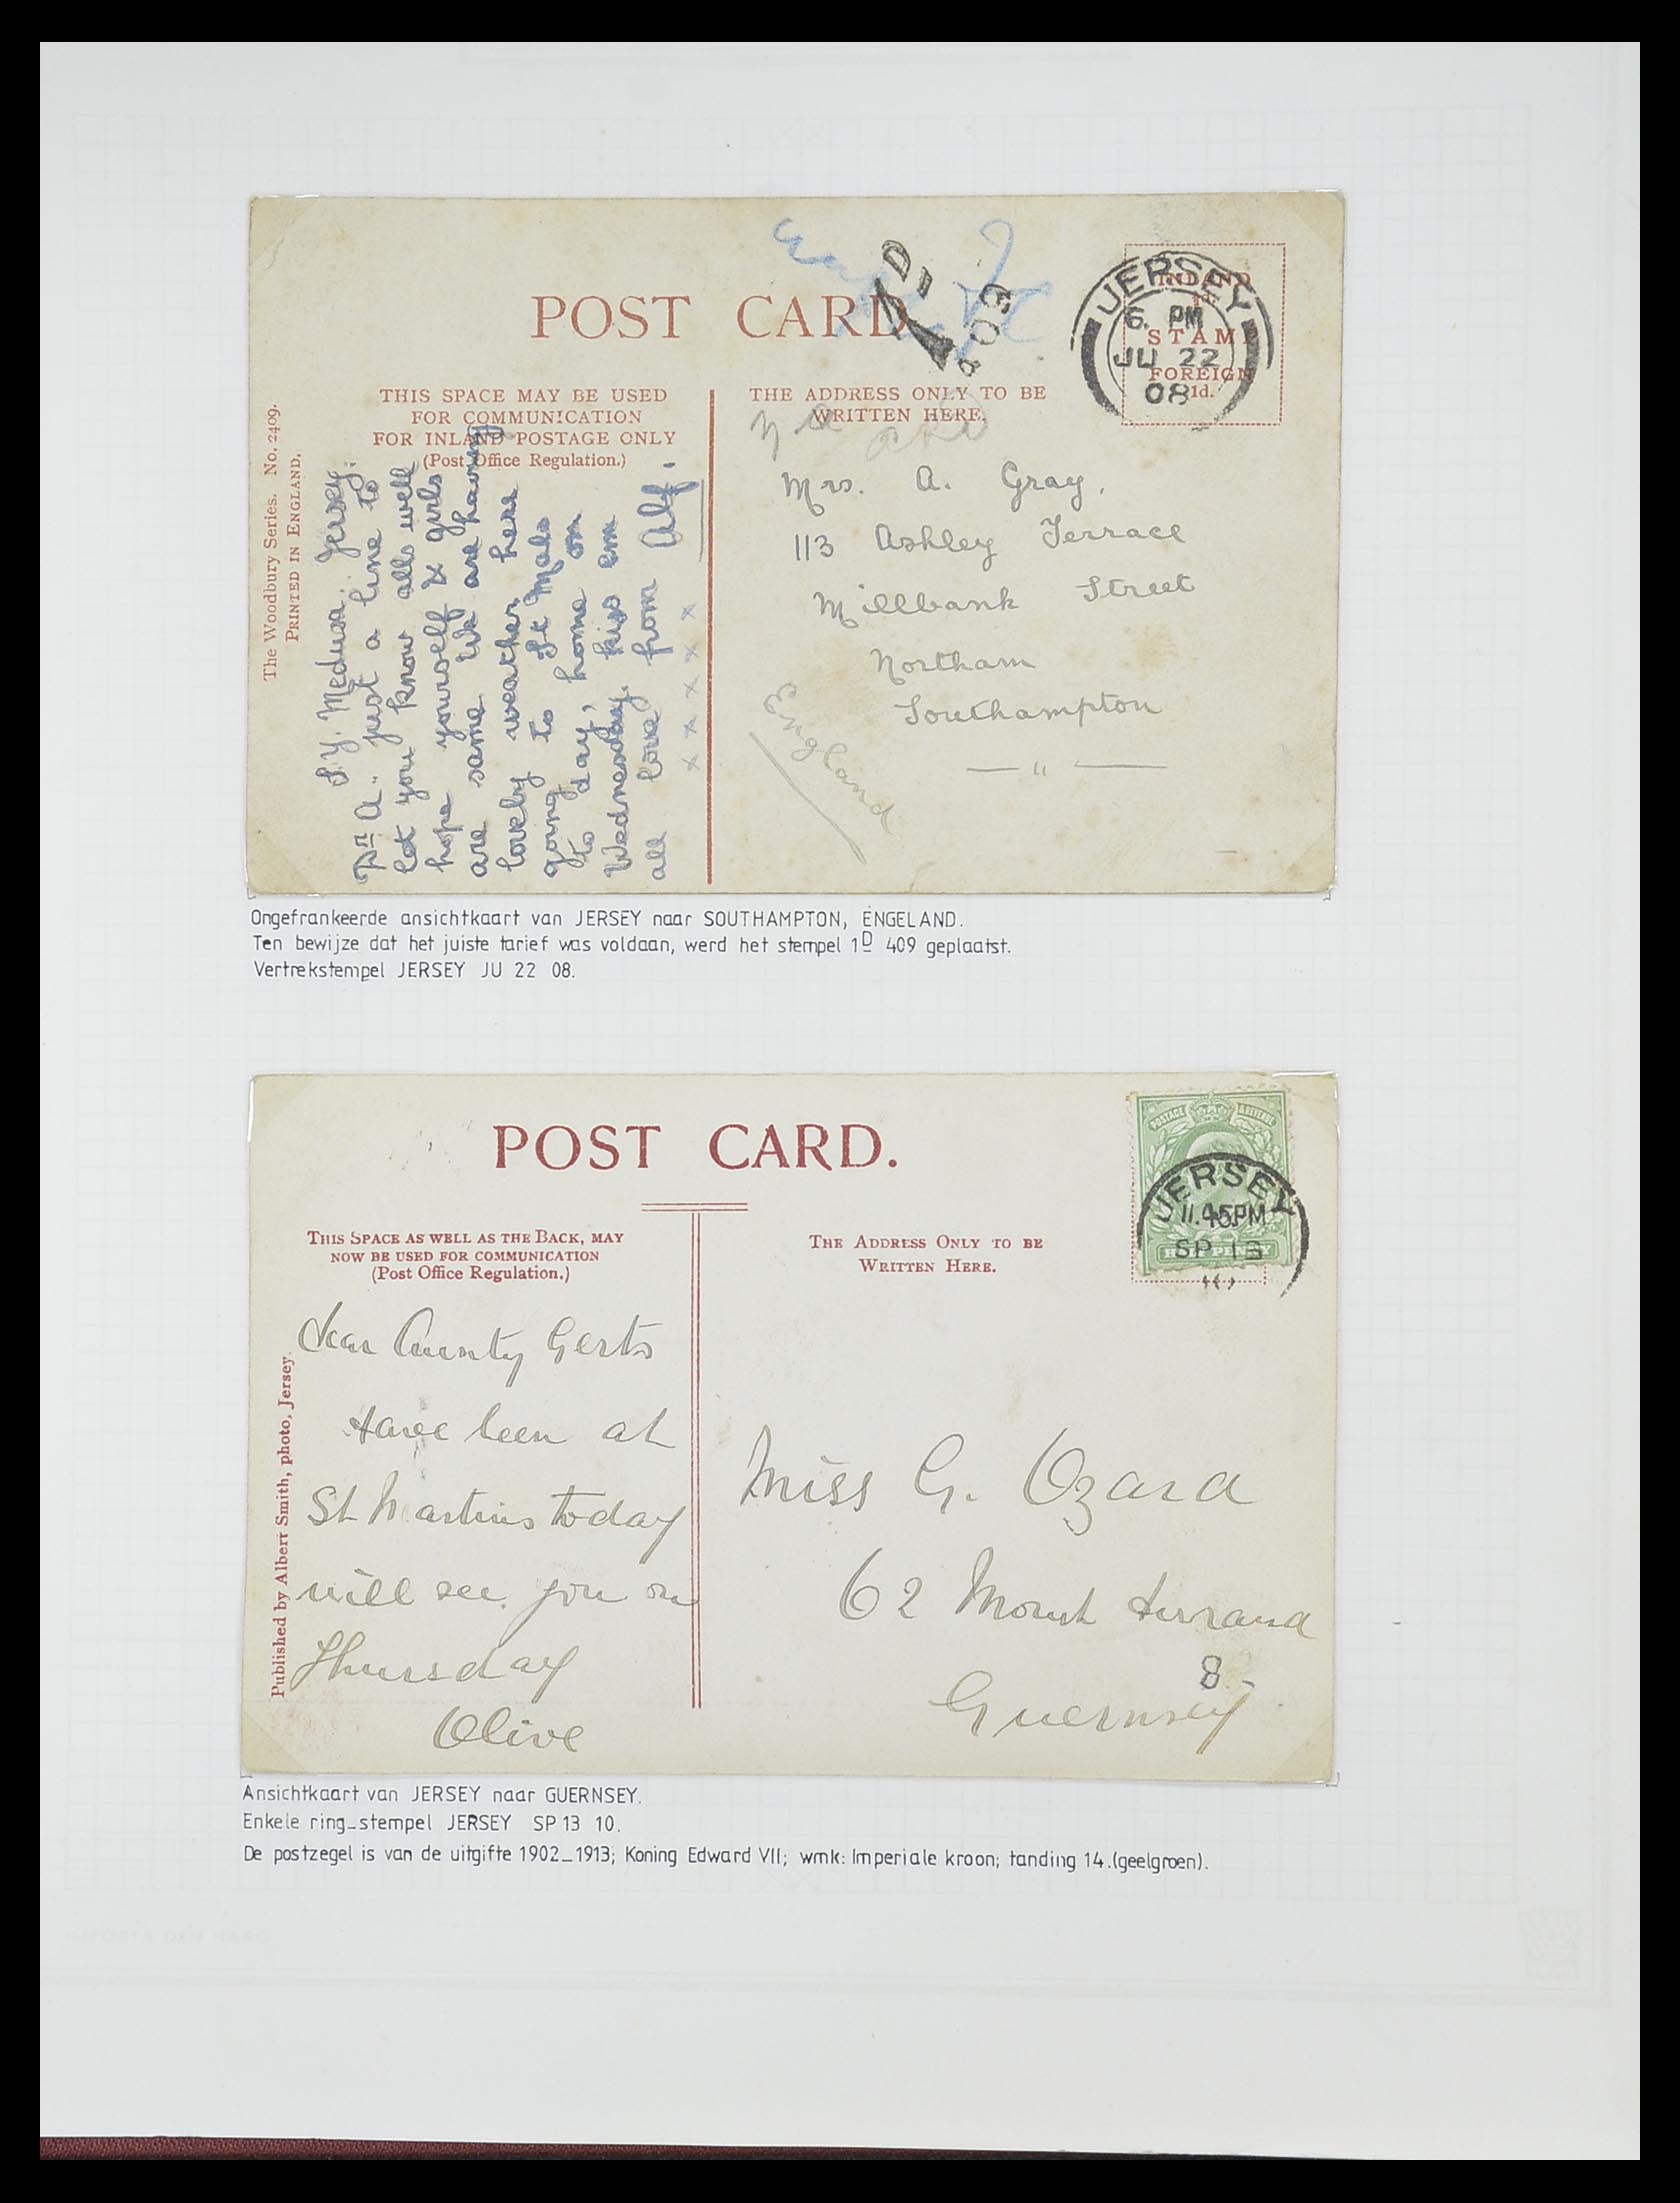 POST CARD
THIS SPACE MAY BE USED
FOR COMMUNICATION
FOR INLAND POSTAGE ONLY
(Post Office Regulation.)
THE ADDRESS ONLY TO BE
WRITTEN HERE.
INLAND
STAMP
FOREIGN
1d.
JERSEY
6. PM
JU 22
08
1 D
409
The Woodbury Series. No. 2409.
PRINTED IN ENGLAND.
S.Y. Medusa. Jersey.
Dr A. just a line to
let you know alls well
hope yourself & girls
are same We are having
lovely weather here
going to St Malo
to day, home on
Wednesday. kiss em
all love from Alf.
x x x x x
Mrs. A. Gray,
113 Ashley Terrace
Millbank Street
Northam
Southampton
England
Ongefrankeerde ansichtkaart van JERSEY naar SOUTHAMPTON, ENGELAND.
Ten bewijze dat het juiste tarief was voldaan, werd het stempel 1D 409 geplaatst.
Vertrekstempel JERSEY JU 22 08.
POST CARD.
THIS SPACE AS WELL AS THE BACK, MAY
NOW BE USED FOR COMMUNICATION
(Post Office Regulation.)
THE ADDRESS ONLY TO BE
WRITTEN HERE.
POSTAGE & REVENUE
HALFPENNY
JERSEY
11.45PM
SP 13
10
Published by Albert Smith, photo, Jersey.
Dear Aunty Gerts
Have been at
St Martins today
will see you on
Thursday
Olive
Miss G. Ozard
62 Mount Durrand
8
Guernsey
Ansichtkaart van JERSEY naar GUERNSEY.
Enkele ring-stempel JERSEY SP 13 10.
De postzegel is van de uitgifte 1902-1913; Koning Edward VII; wmk: Imperiale kroon; tanding 14.(geelgroen).